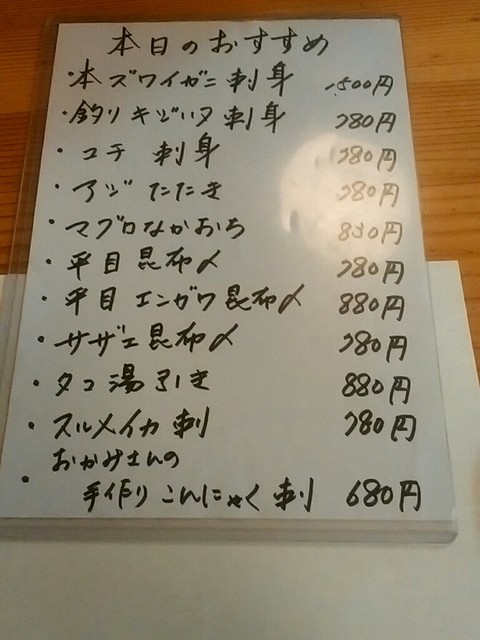 本日のおすすめ
・本ズワイガニ刺身 1,500円
・釣りキジハタ刺身 780円
・コチ 刺身 780円
・アジ たたき 780円
・マグロなかおち 850円
・平目昆布〆 780円
・平目エンガワ昆布〆 880円
・サザエ昆布〆 780円
・タコ湯引き 880円
・スルメイカ刺 780円
おかみさんの
・手作りこんにゃく刺 680円